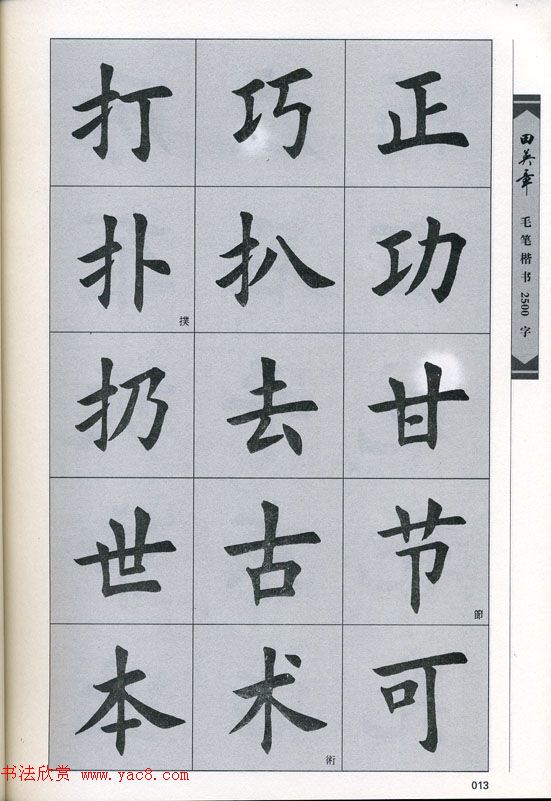 打 巧 正
扑 撲 扒 功
扔 去 甘
世 古 节 節
本 术 術 可
田英章 毛笔楷书 2500 字
书法欣赏 www.yac8.com
013